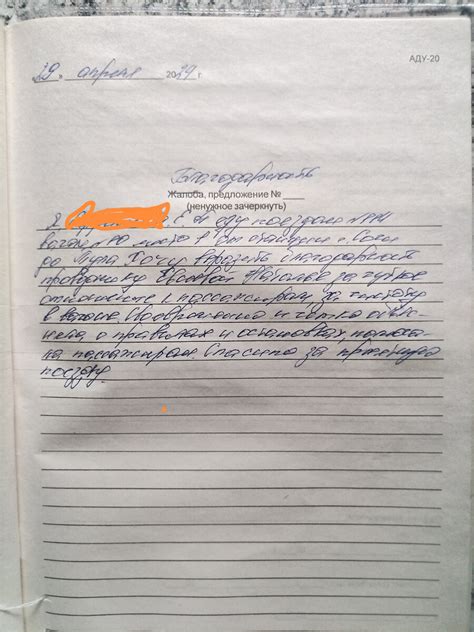 АДУ-20
„29 „ апреля 2019 г.
Благодарность
Жалоба, предложение №
(ненужное зачеркнуть)
Я С. Н еду поездом
вагон место от станции г. Сочи
до Тула Хочу выразить благодарность
проводнику Наталье за чуткое
отношение к пассажирам, за чистоту
в вагоне. Своевременно и чётко
о правилах и остановках,
пассажирам. Спасибо за приятную
поездку.